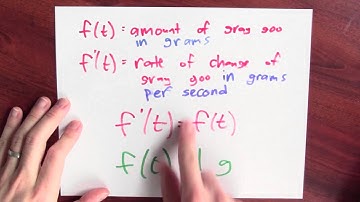 f(t) : amount of gray goo
in grams
f'(t) = rate of change of
gray goo in grams
per second
f'(t) = f(t)
f( 1 g